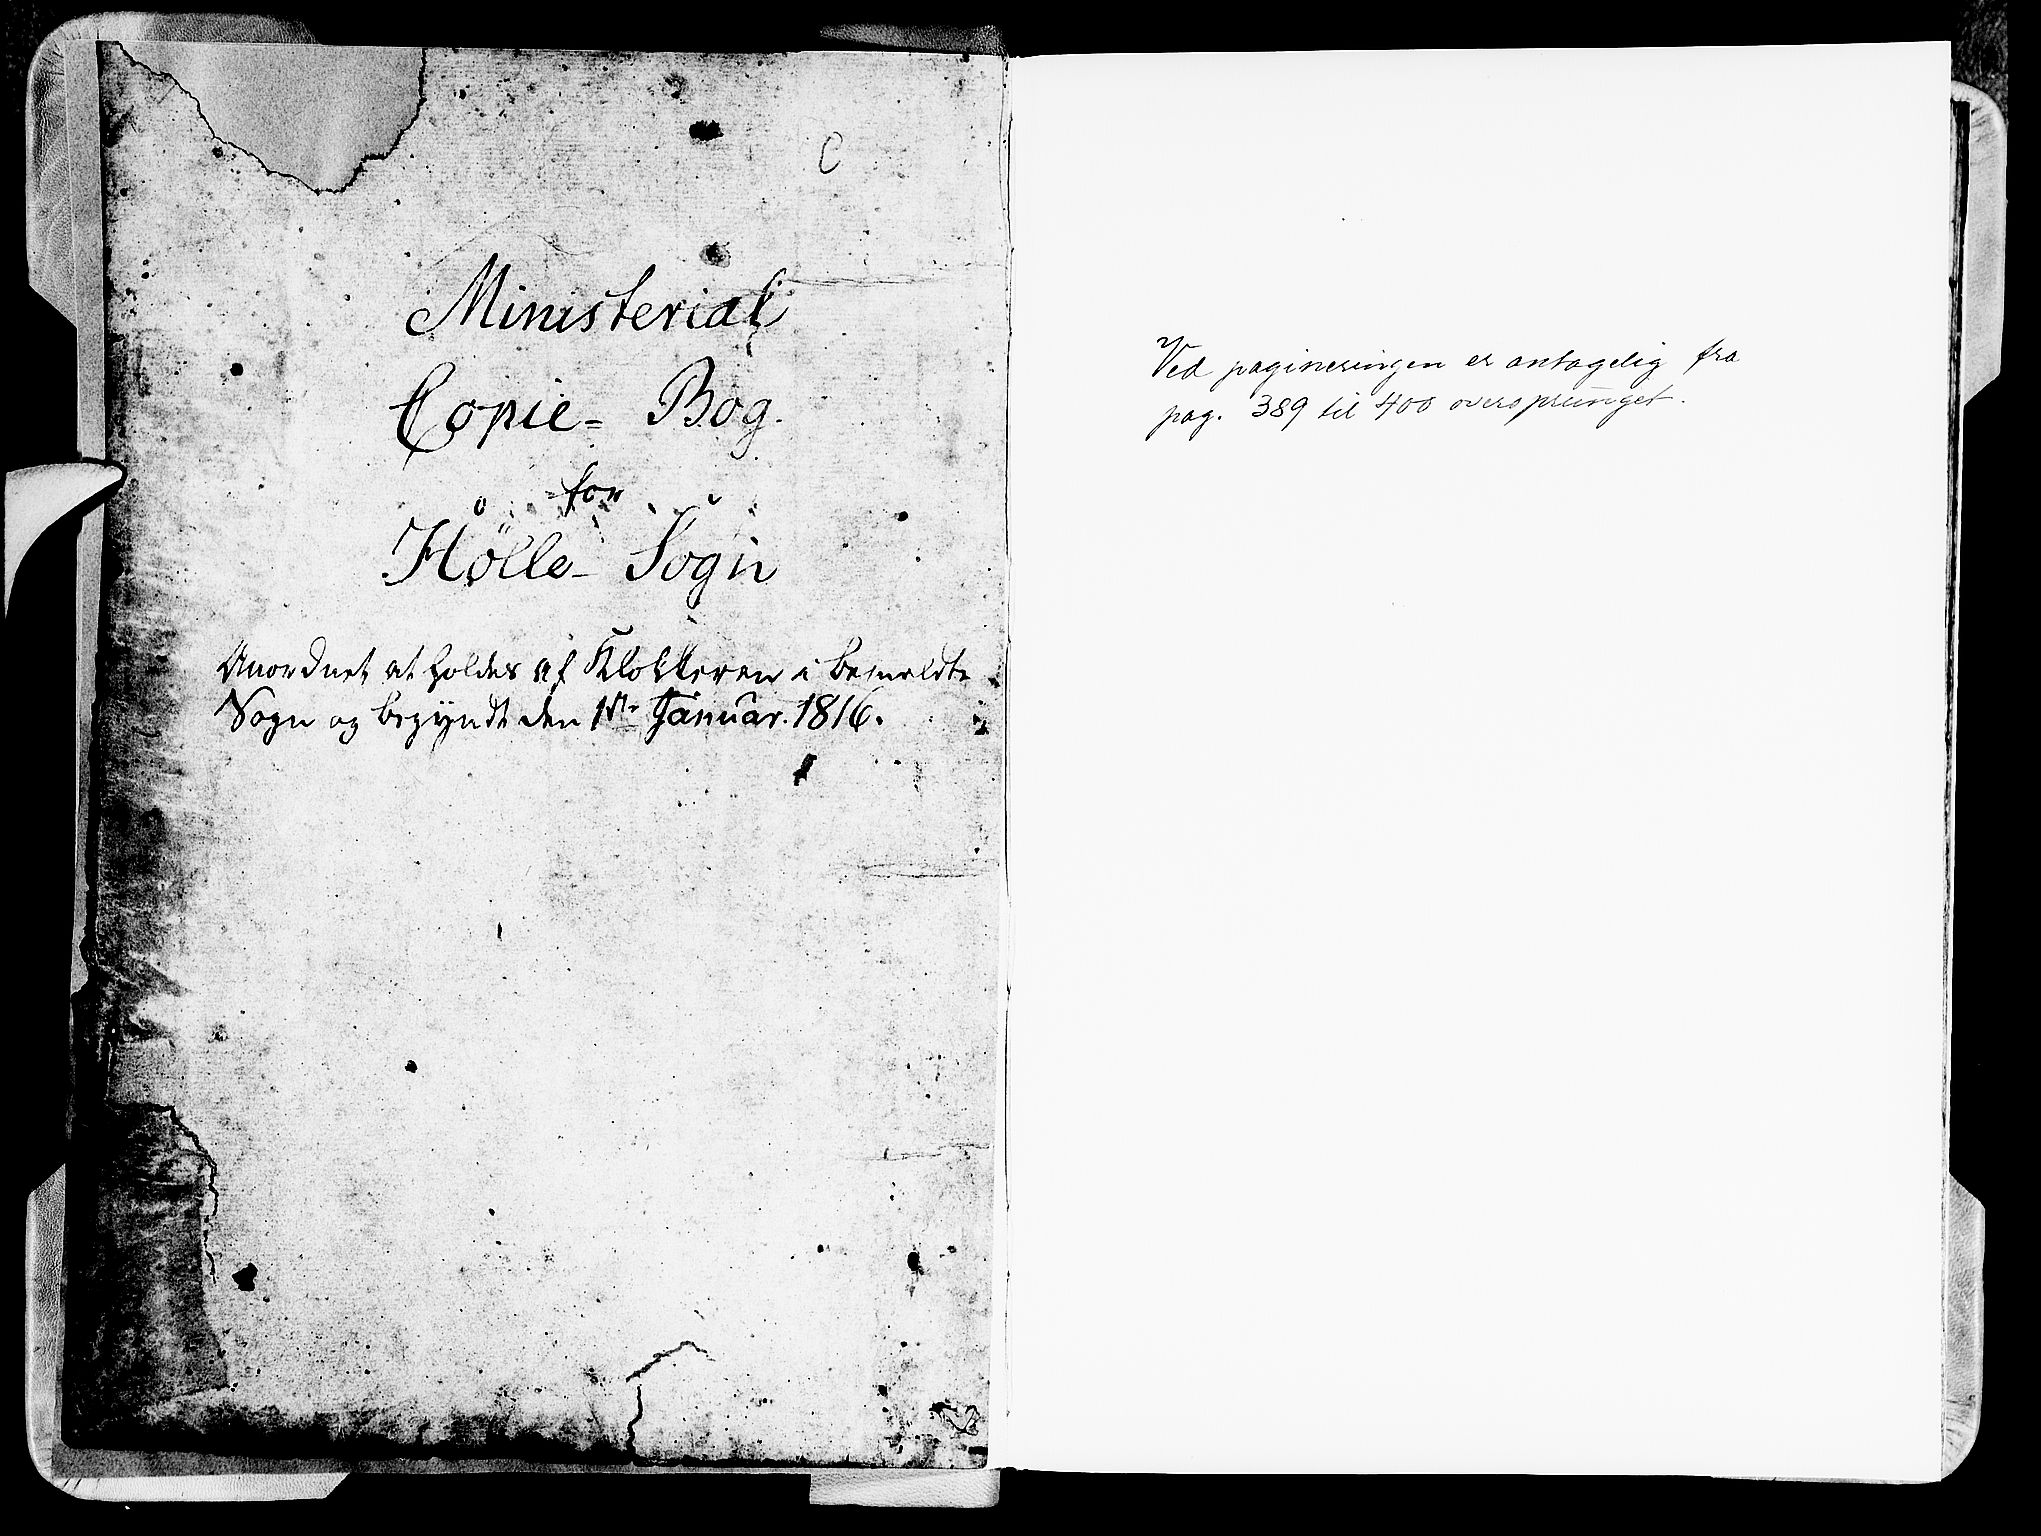 C
Ministerial
Copie- Bog.
for
Hölle- Sogn
Anordnet at holdes af Klokkeren i bemeldte
Sogn og begyndt den 1ste Januar. 1816.
Ved pagineringen er antagelig fra
pag. 389 til 400 oversprunget.